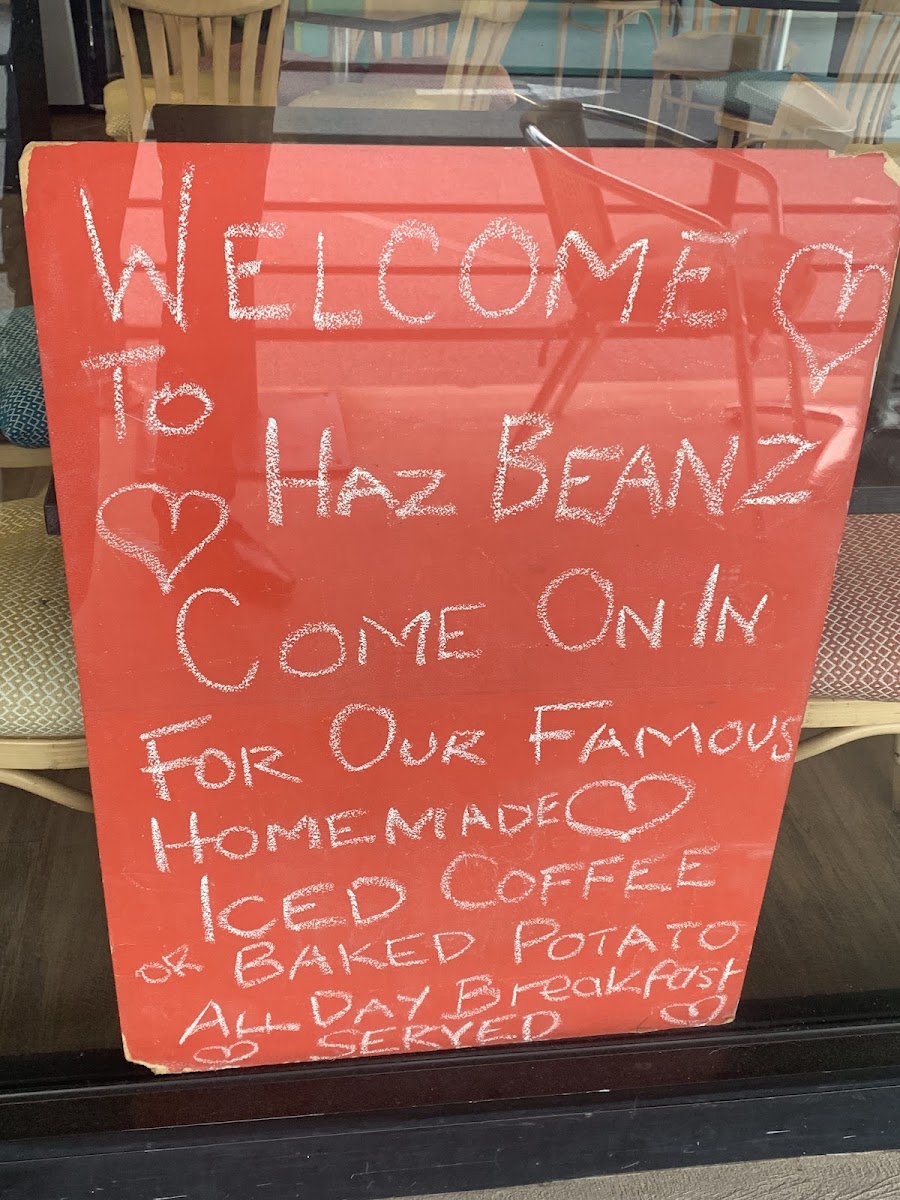 WELCOME
TO
HAZ BEANZ
COME ON IN
FOR OUR FAMOUS
HOMEMADE
ICED COFFEE
OR BAKED POTATO
ALL DAY Breakfast
SERVED